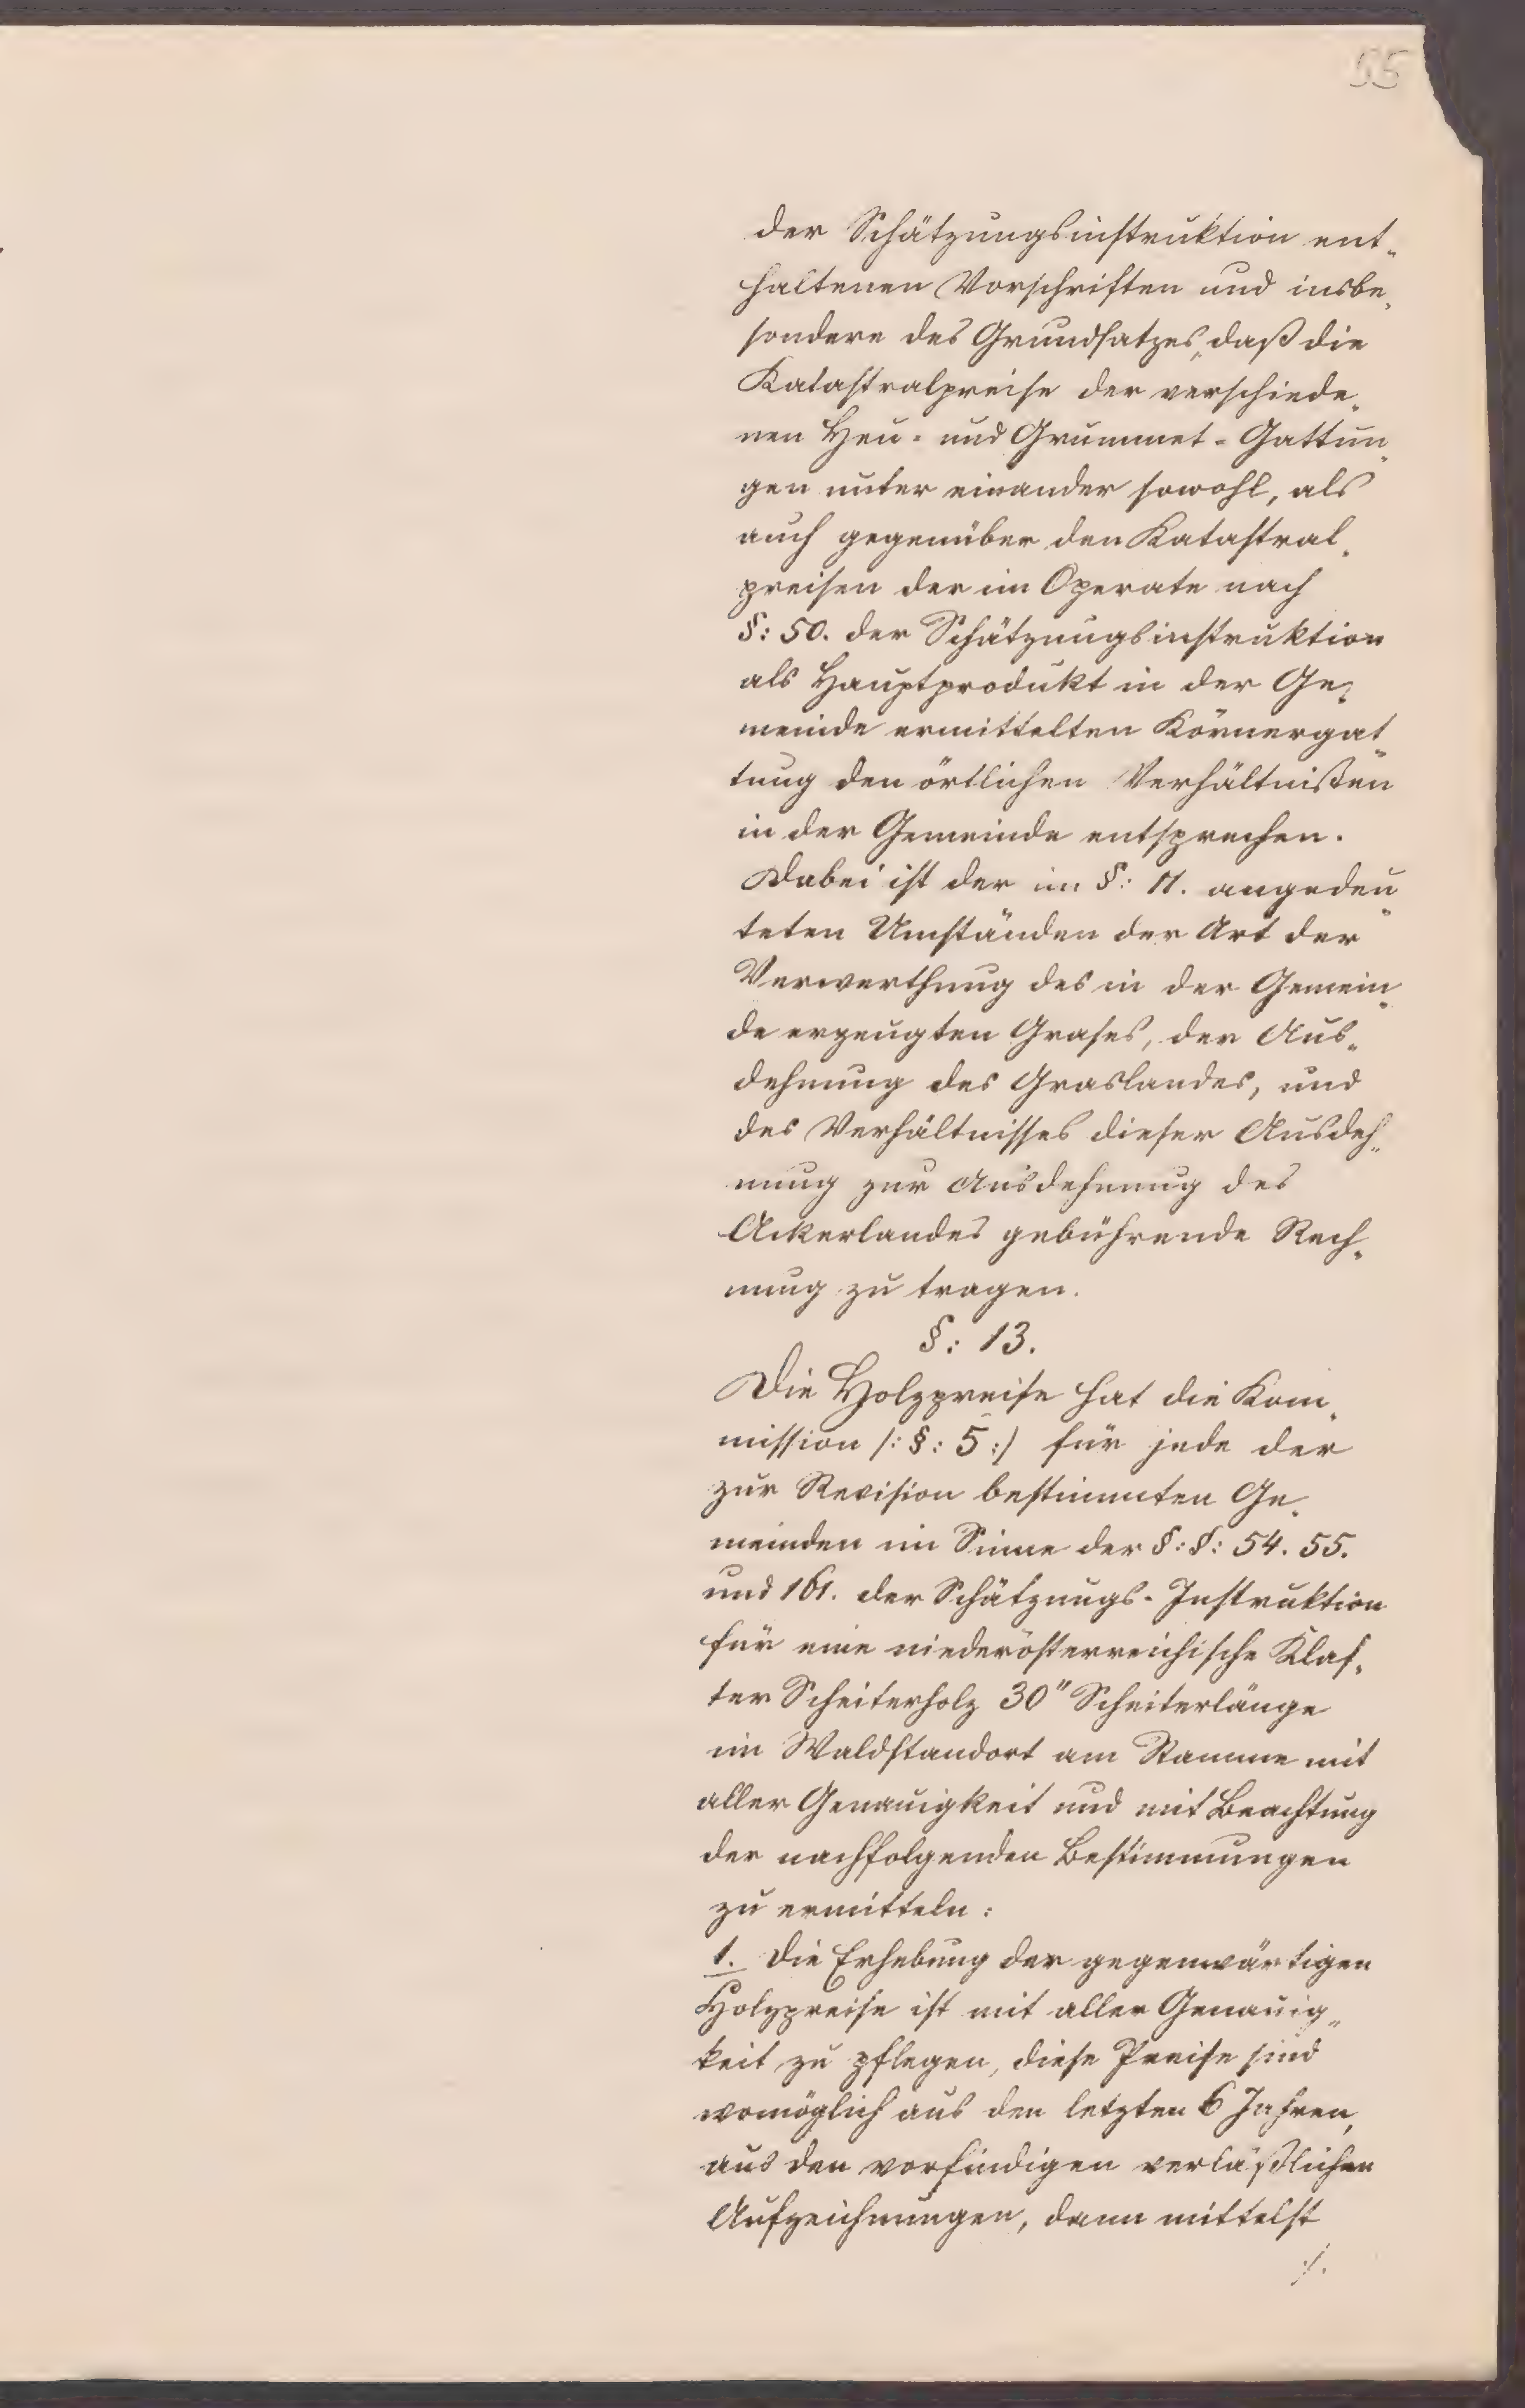 55
der Schätzungsinstruktion ent„
haltenen Vorschriften und insbe„
sondere des Grundsatzes„ daß die
Katastralpreise der verschiede„
nen Heu- und Grummet-Gattun„
gen unter einander sowohl, als
auch gegenüber den Katastral„
preisen der im Operate nach
§: 50. der Schätzungsinstruktion
als Hauptprodukt in der Ge„
meinde ermittelten Körnergat„
tung den örtlichen Verhältnißen
in der Gemeinde entsprechen.
Dabei ist der im §: 11. angedeu„
teten Umständen der Art der
Verwerthung des in der Gemein„
de erzeugten Grases, der Aus„
dehnung des Graslandes, und
des Verhältnisses dieser Ausdeh„
nung zur Ausdehnung des
Ackerlandes gebührende Rech„
nung zu tragen.
§: 13.
Die Holzpreise hat die Kom„
mission /: §: 5 :/ für jede der
zur Revision bestimmten Ge„
meinden im Sinne der §:§: 54. 55.
und 161. der Schätzungs-Instruktion
für eine niederösterreichische Klaf„
ter Scheiterholz 30" Scheiterlänge
im Waldstandort am Stamme mit
aller Genauigkeit und mit Beachtung
der nachfolgenden Bestimmungen
zu ermitteln:
1. Die Erhebung der gegenwärtigen
Holzpreise ist mit aller Genauig„
keit zu pflegen, diese Preise sind
womöglich aus den letzten 6 Jahren,
aus den vorfindigen verläßlichen
Aufzeichnungen, dann mittelst
./.